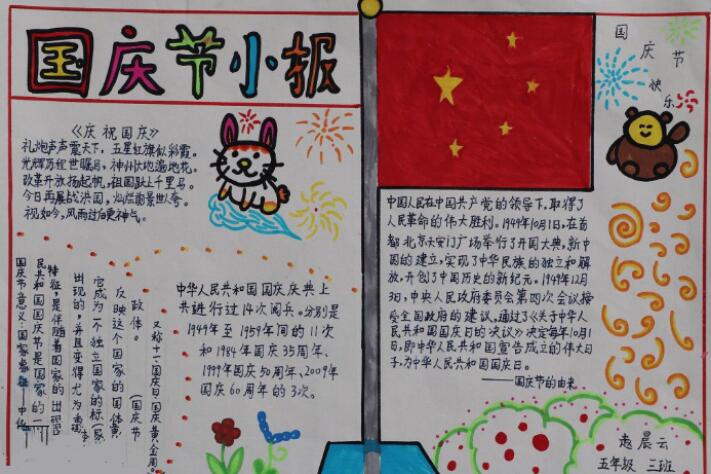 国庆节小报
《庆祝国庆》
礼炮声声震天下，五星红旗似彩霞。
光辉历程世瞩目，神州大地遍地花。
改革开放扬起帆，祖国跃上千里马。
今日再展战洪图，灿烂前景世人夸。
视如今，风雨过后更神气。
国庆节意义：国家象征
民共和国国庆节是国家的一
特征，是伴随着国家的出
出现的，并且变得尤为重
它成为一个独立国家的标
反映这个国家的国体
政体。
（国庆节
又称十一、国庆日、国庆黄金周
中华人民共和国国庆庆典上
共进行过14次阅兵。分别是
1949年至1959年间的11次
和1984年国庆35周年、
1999年国庆50周年、2009年
国庆60周年的3次。
国庆节快乐
中国人民在中国共产党的领导下，取得了
人民革命的伟大胜利。1949年10月1日，在首
都北京天安门广场举行了开国大典，新中
国的建立，实现了中华民族的独立和解
放，开创了中国历史的新纪元。1949年12
月3日，中央人民政府委员会第四次会议接
受全国政府的建议，通过了《关于中华人
民共和国国庆日的决议》决定每年10月1
日，即中华人民共和国宣告成立的伟大日
子，为中华人民共和国国庆日。
——国庆节的由来
赵晨云
五年级 三班